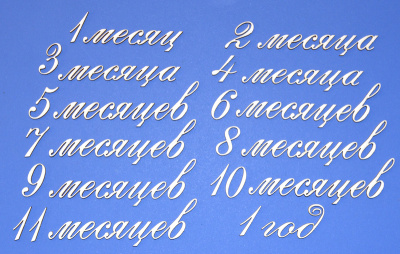 1 месяц
2 месяца
3 месяца
4 месяца
5 месяцев
6 месяцев
7 месяцев
8 месяцев
9 месяцев
10 месяцев
11 месяцев
1 год